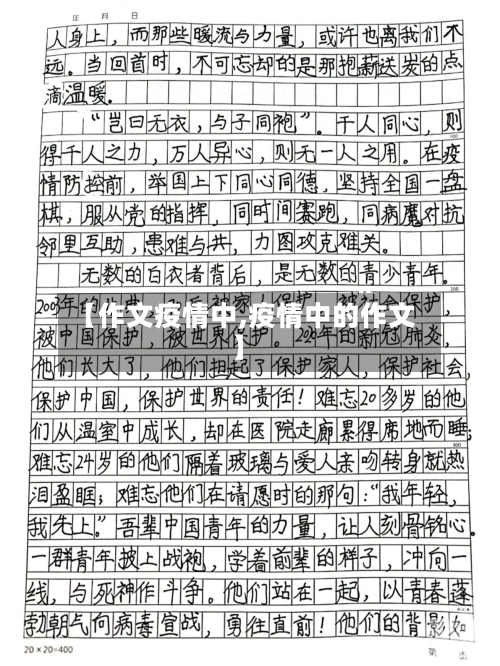 年 月 日
人身上，而那些暖流与力量，或许也离我们不
远。当回首时，不可忘却的是那抱薪送炭的点
滴温暖.
“岂曰无衣，与子同袍”。千人同心，则
100
得千人之力，万人异心，则无一人之用。在疫
情防控前，举国上下同心同德，坚持全国一盘
棋，服从党的指挥，同时间赛跑，同病魔对抗
邻里互助，患难与共，力图攻克难关。
无数的白衣者背后，是无数的青少年。
200
2003年的
保护，被社会保护，
【作文疫情中,疫情中的作文
】
被中国保护，被世界保护。2020年的新冠肺炎，
他们长大了，他们担起了保护家人，保护社会，
保护中国，保护世界的责任！难忘20多岁的他
们从温室中成长，却在医院走廊累得席地而睡；
300
难忘24岁的他们隔着玻璃与爱人亲吻转身就热
泪盈眶；难忘他们在请愿时的那句：“我年轻，
我先上。”吾辈中国青年的力量，让人刻骨铭心。
一群青年披上战袍，学着前辈的样子，冲向一
线，与死神作斗争。他们站在一起，以青春蓬
勃朝气向病毒宣战，勇往直前！他们的背影如
20×20=400
第 面